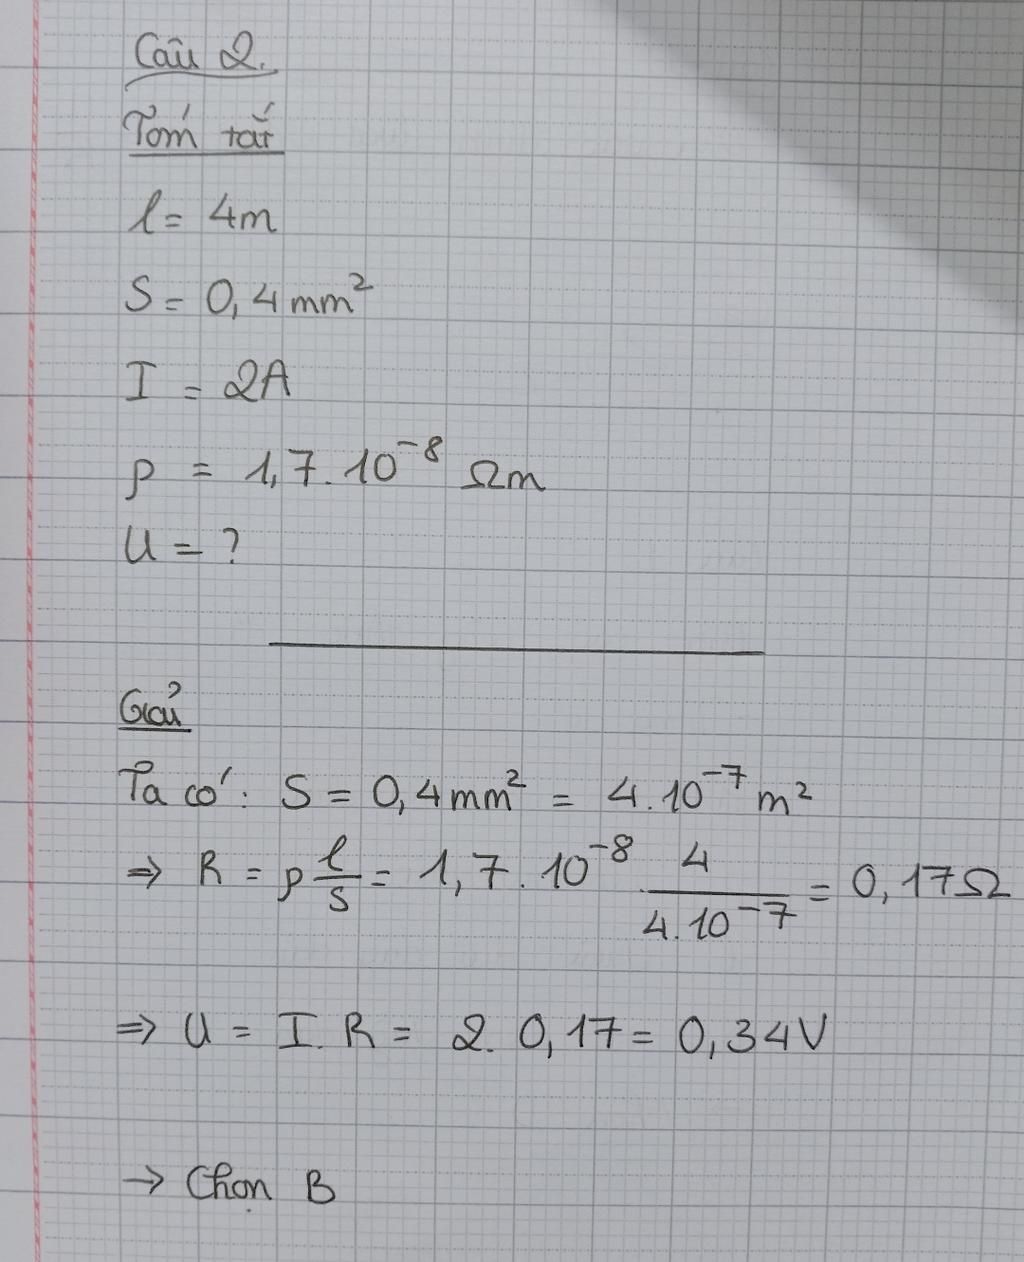 Câu 2.
Tóm tắt
l = 4m
S = 0,4 mm²
I = 2A
ρ = 1,7.10⁻⁸ Ωm
U = ?
Giải
Ta có: S = 0,4mm² = 4.10⁻⁷ m²
⇒ R = ρ l/S = 1,7.10⁻⁸ . 4/4.10⁻⁷ = 0,17Ω
⇒ U = I.R = 2.0,17 = 0,34V
→ Chọn B